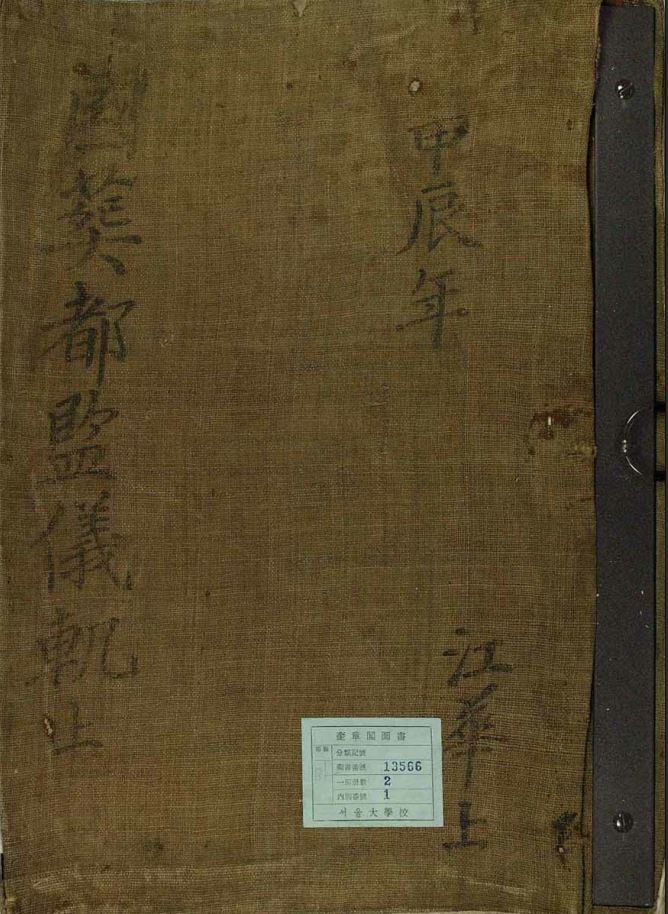 甲辰年
江華上
國葬都監儀軌上
奎章閣圖書
分類記號
圖書番號 13566
一部冊數 2
內別番號 1
서울大學校